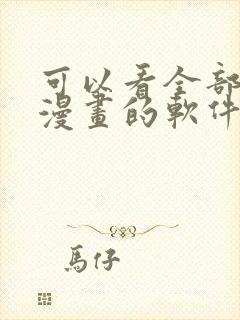 可以看全部
漫畫的軟件
馬仔